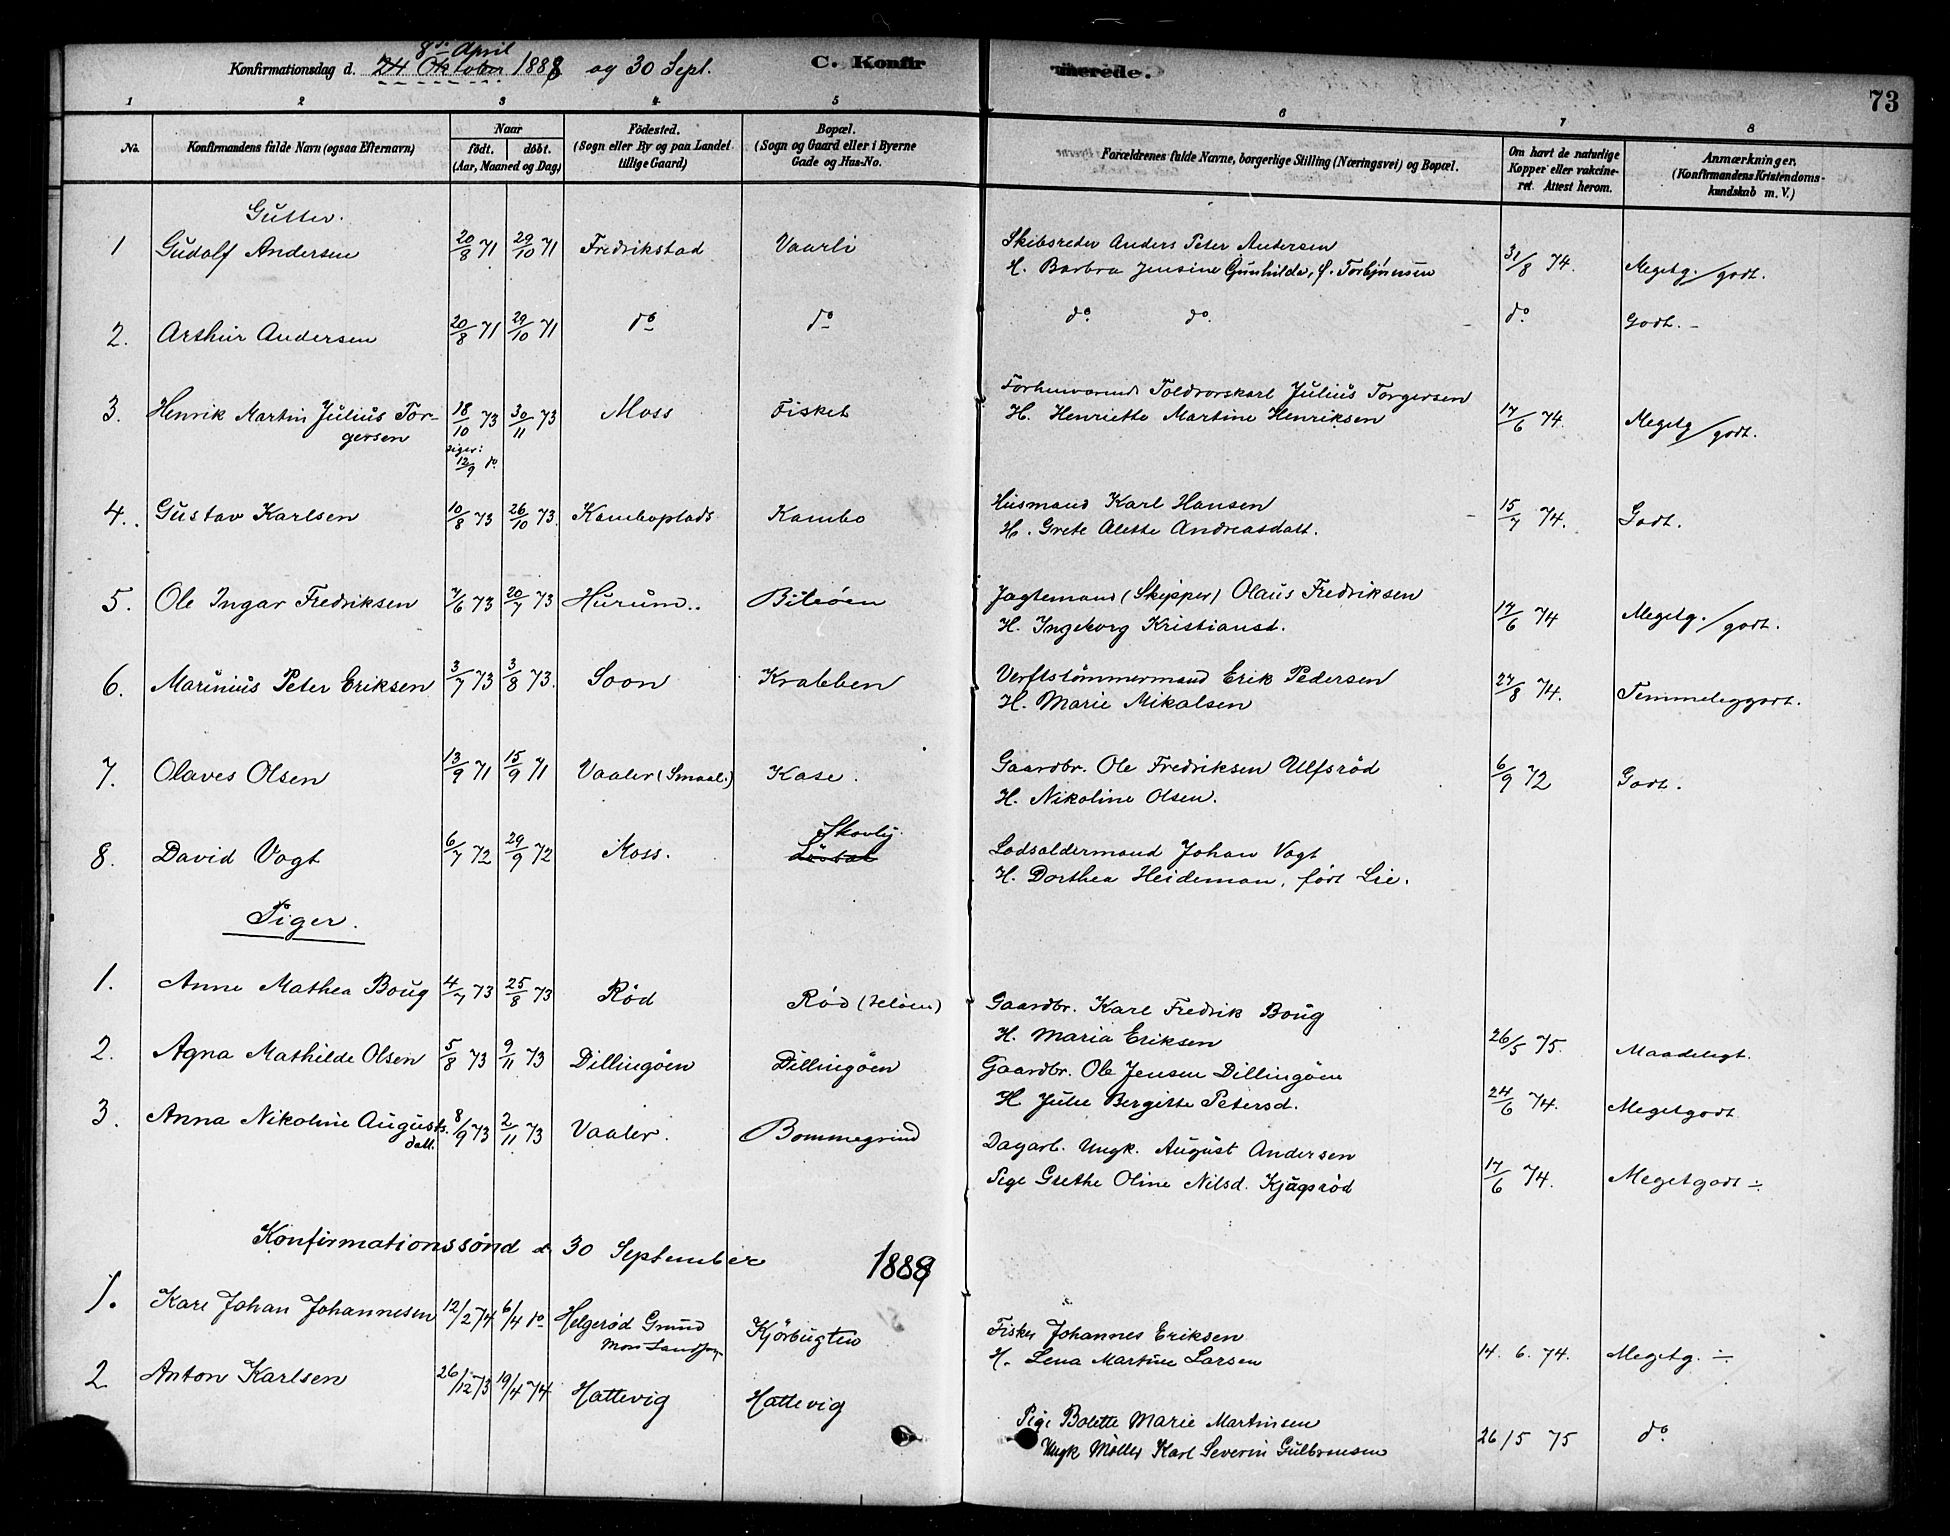 8de April
Konfirmationsdag d. 24 Oktober 1888 og 30 Sept. C. Konfirmerede. 73
1 2 3 4 5 6 7 8
No. Konfirmandens fulde Navn (ogsaa Efternavn) Naar födt. döbt. (Aar, Maaned og Dag) Födested. (Sogn eller By og paa Landet tillige Gaard) Bopæl. (Sogn og Gaard eller i Byerne Gade og Hus-No. Forældrenes fulde Navne, borgerlige Stilling (Næringsvei) og Bopæl. Om havt de naturlige Kopper eller vakcineret. Attest herom. Anmærkninger. (Konfirmandens Kristendomskundskab m. V.)
Gutter.
1 Gudolf Andersen 20/8 71 29/10 71 Fredrikstad Vaarli Skibsreder Anders Peter Andersen 31/8 74. Megetg./godt.
H. Barbra Jensine Gunhilde, f. Torbjørnsen
2. Arthur Andersen 20/8 71 29/10 71 do do do. do. do Godt. –
3. Henrik Martin Julius Tor- 18/10 73 30/11 73 Moss Fisket Forhenværende Toldrorskarl Julius Torgersen 17/6 74. Megetg/godt.
gersen siger: 12/9 do. H. Henriette Martine Henriksen
4. Gustav Karlsen 10/8 73 26/10 73. Kamboplads Kambo Husmand Karl Hansen 15/7 74. Godt.
H. Grete Alette Andreasdatt.
5. Ole Ingar Fredriksen 7/6 73 20/7 73 Hurum.. Biløen Jagtemand (Skipper) Olaus Fredriksen 17/6 74 Megetg./godt.
H. Ingeborg Kristiansd.
6. Marinius Peter Eriksen 3/7 73 3/8 73. Soon Krabben Verftstömmermand Erik Pedersen 27/8 74. Temmeleggodt.
H. Marie Mikalsen
7. Olaves Olsen 13/9 71 15/9 71 Vaaler (Smaal.) Kase. Gaardbr. Ole Fredriksen Ulfsröd 6/9 72 Godt.
H. Nikoline Olsen.
Skovly.
8. David Vogt 6/7 72 29/9 72 Moss. Lodsoldermand Johan Vogt
H. Dorthea Heideman, født Lie.
Piger.
1. Anne Mathea Boug 4/7 73 25/8 73 Rød Rød (Jeløen) Gaardbr. Karl Fredrik Boug
H. Maria Eriksen 26/5 75. Maadelegt.
2. Agna Mathilde Olsen 5/8 73 9/11 73 Dillingöen Dillingöen Gaardbr. Ole Jensen Dillingöen
H. Julie Bergitte Petersd. 24/6 74. Megetgodt
3. Anna Nikoline Augusts. 8/9 73 2/11 73 Vaaler. Bommegrind Dagarb. Ungk. August Andersen
datt. Pige Grethe Oline Nilsd. Kjugsröd 17/6 74. Megetgodt ÷
Konfirmationssönd d. 30 September 1888
1. Karl Johan Johannesen 12/2 74 6/4 do Helgerød Grund Kjörbugten Fisker Johannes Eriksen
Moss Landsogn H. Lena Martine Larsen 14. 6. 74. Megetg. ÷
2 Anton Karlsen 26/12 73 19/4 74 Hattevig Hattevig Pige Bolette Marie Martinsen
Ungk Möller Karl Severin Gulbransen 26/5 75 do